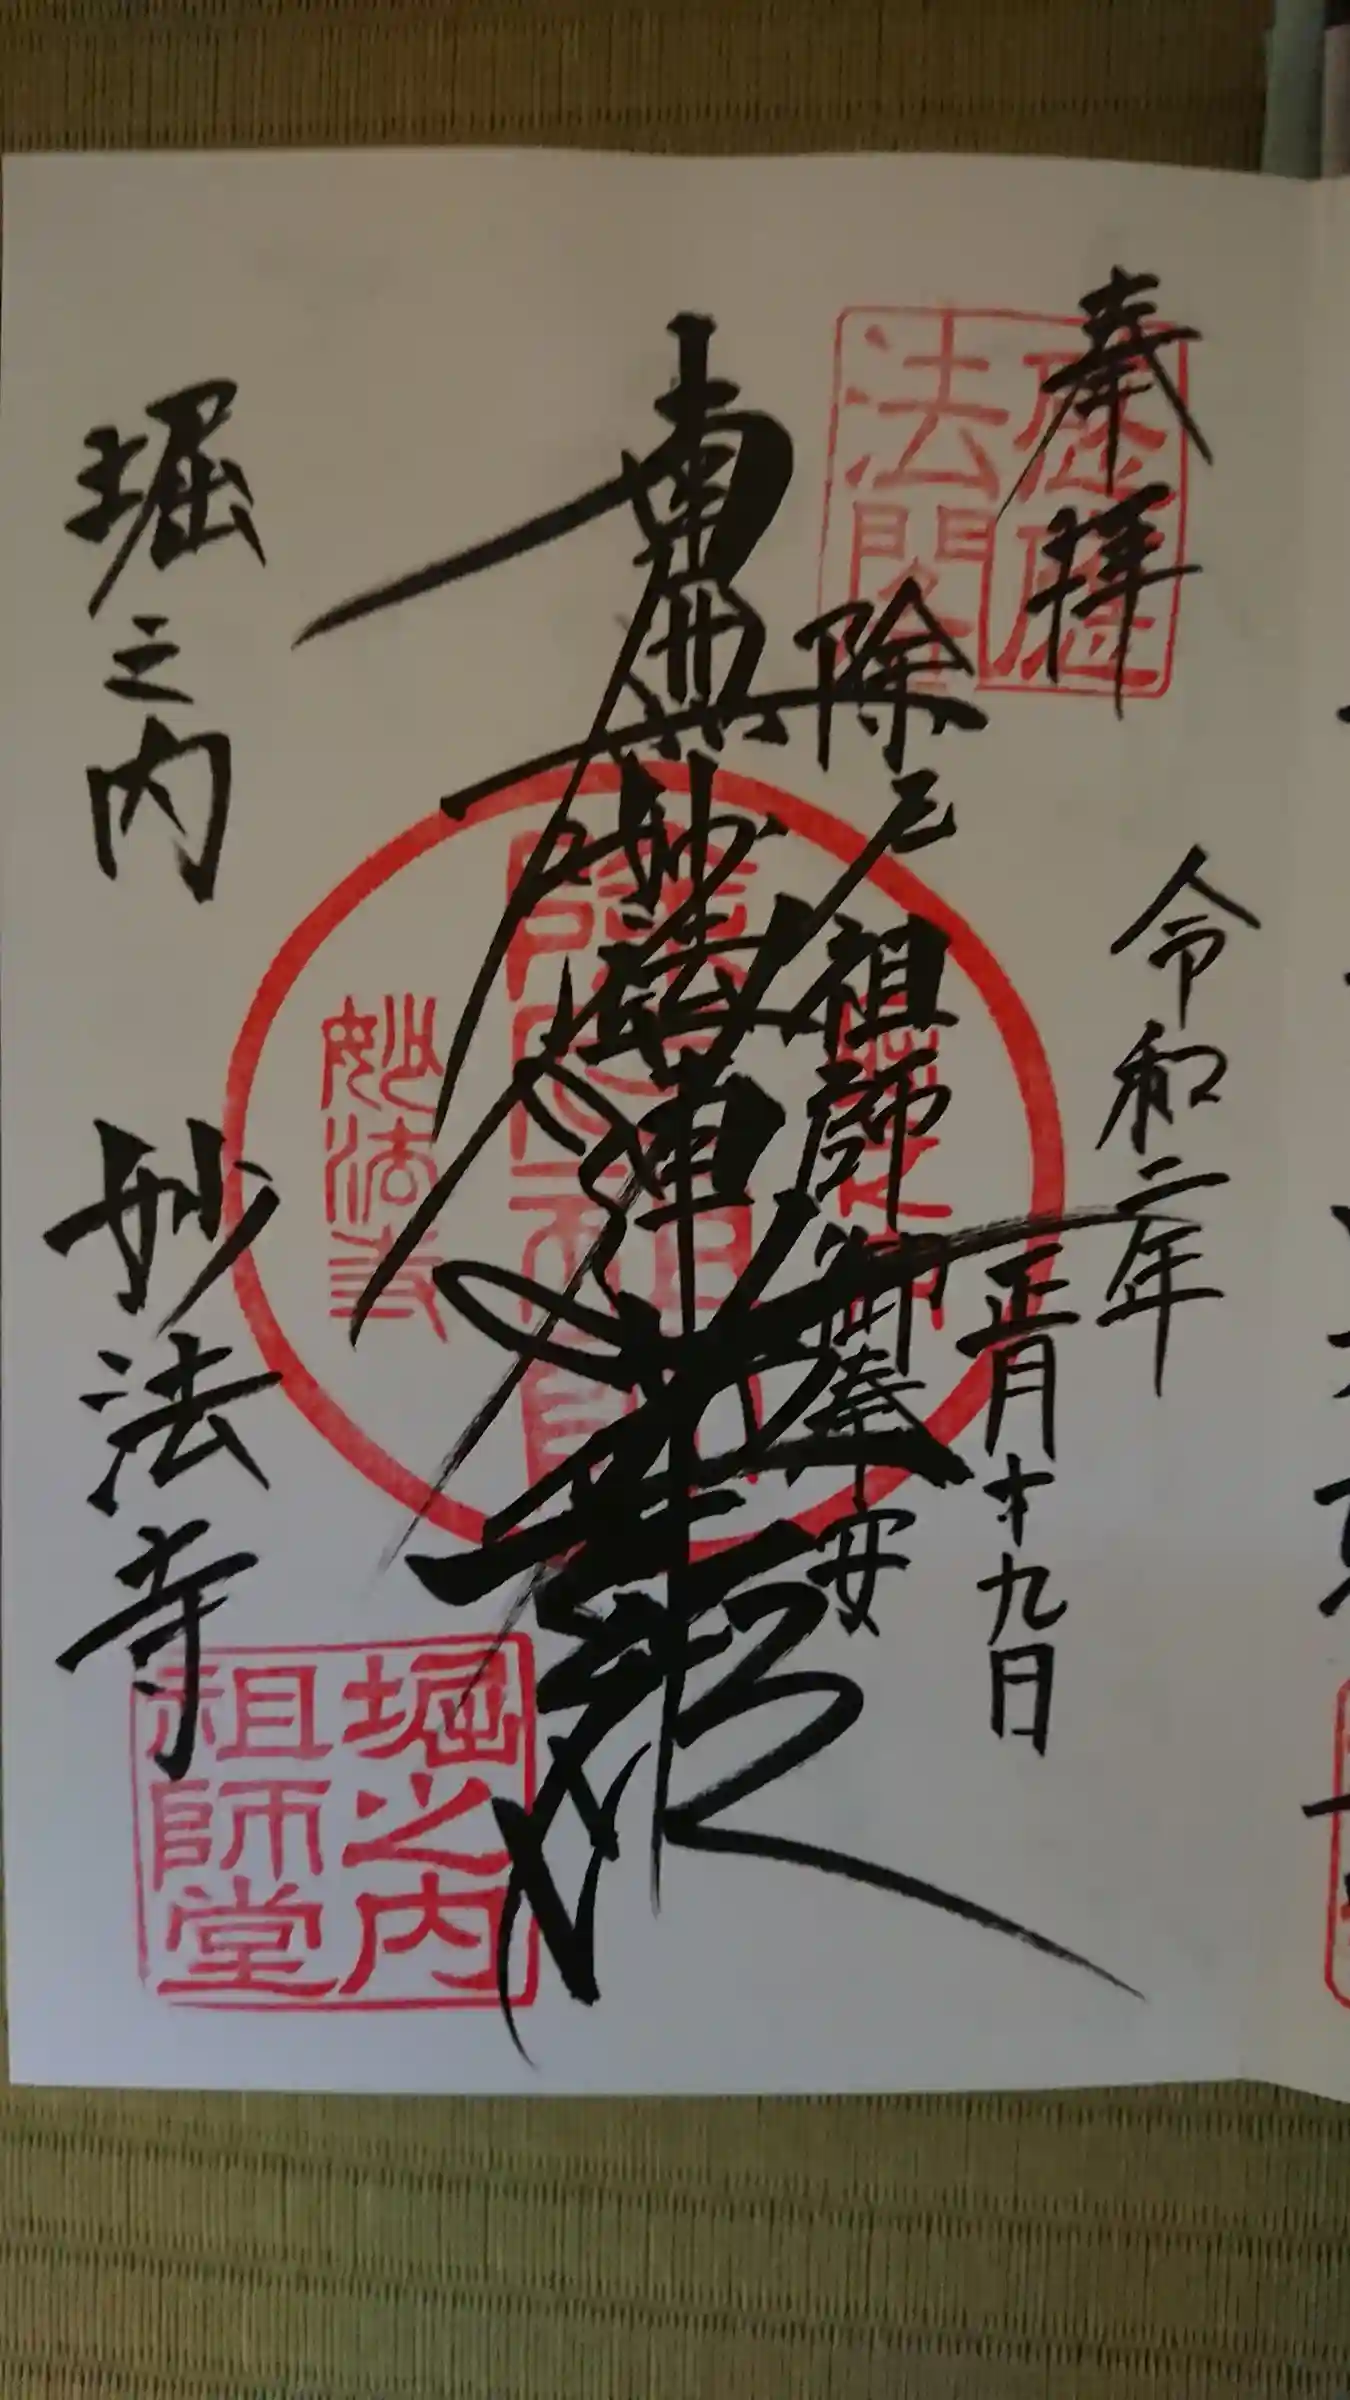 奉拝
令和二年
正月十九日
除厄祖師御奉安
南無妙法蓮華経
堀之内
妙法寺
妙法寺
堀之内
祖師堂